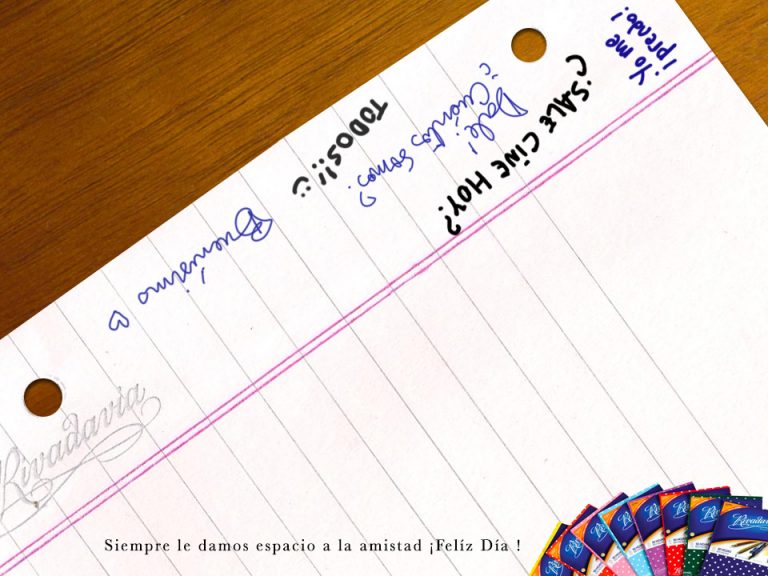 ¿SALE CINE HOY?
¡Yo me
prendo!
Dale!
¿Cuántos somos?
TODOS!!!
Buenísimo
Rivadavia
Siempre le damos espacio a la amistad ¡Felíz Día !
Rivadavia